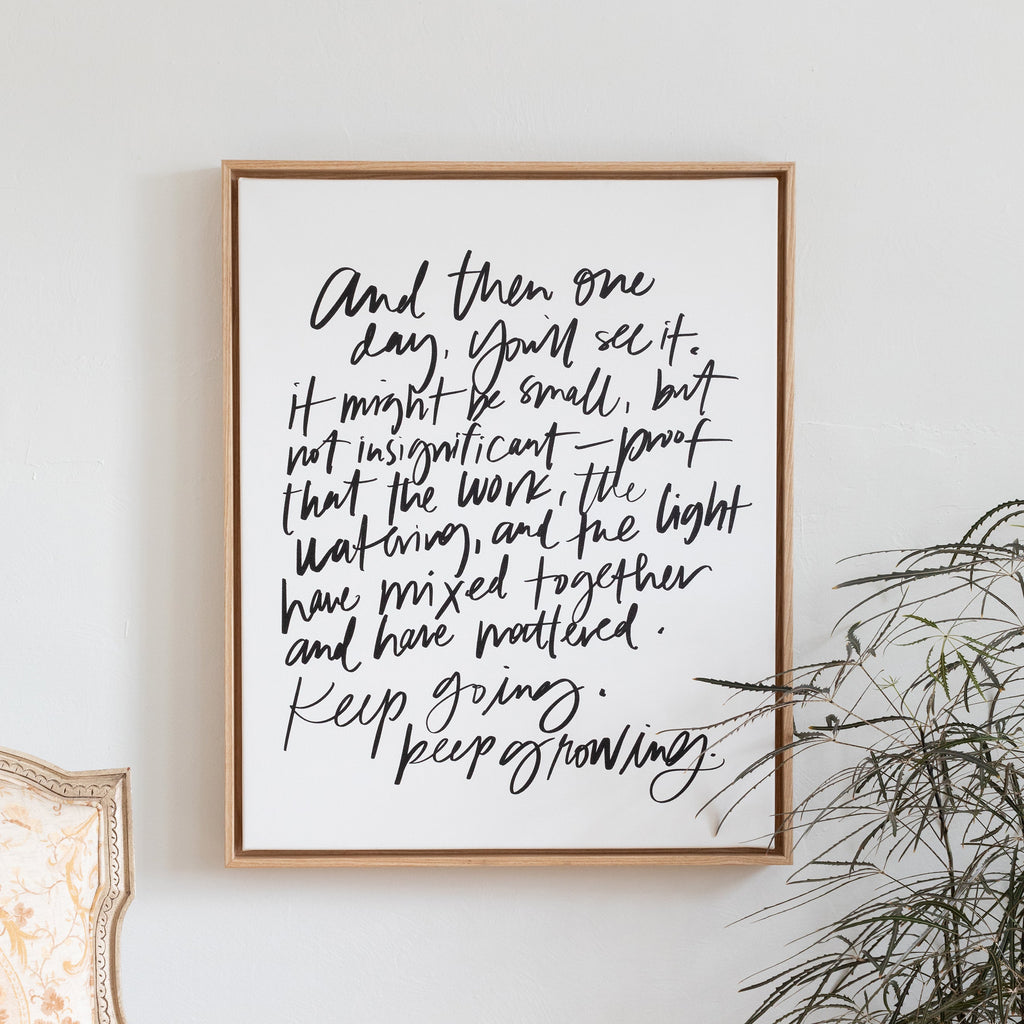 And then one
day, you'll see it.
it might be small, but
not insignificant – proof
that the work, the
watering, and the light
have mixed together
and have mattered.
Keep going.
keep growing.